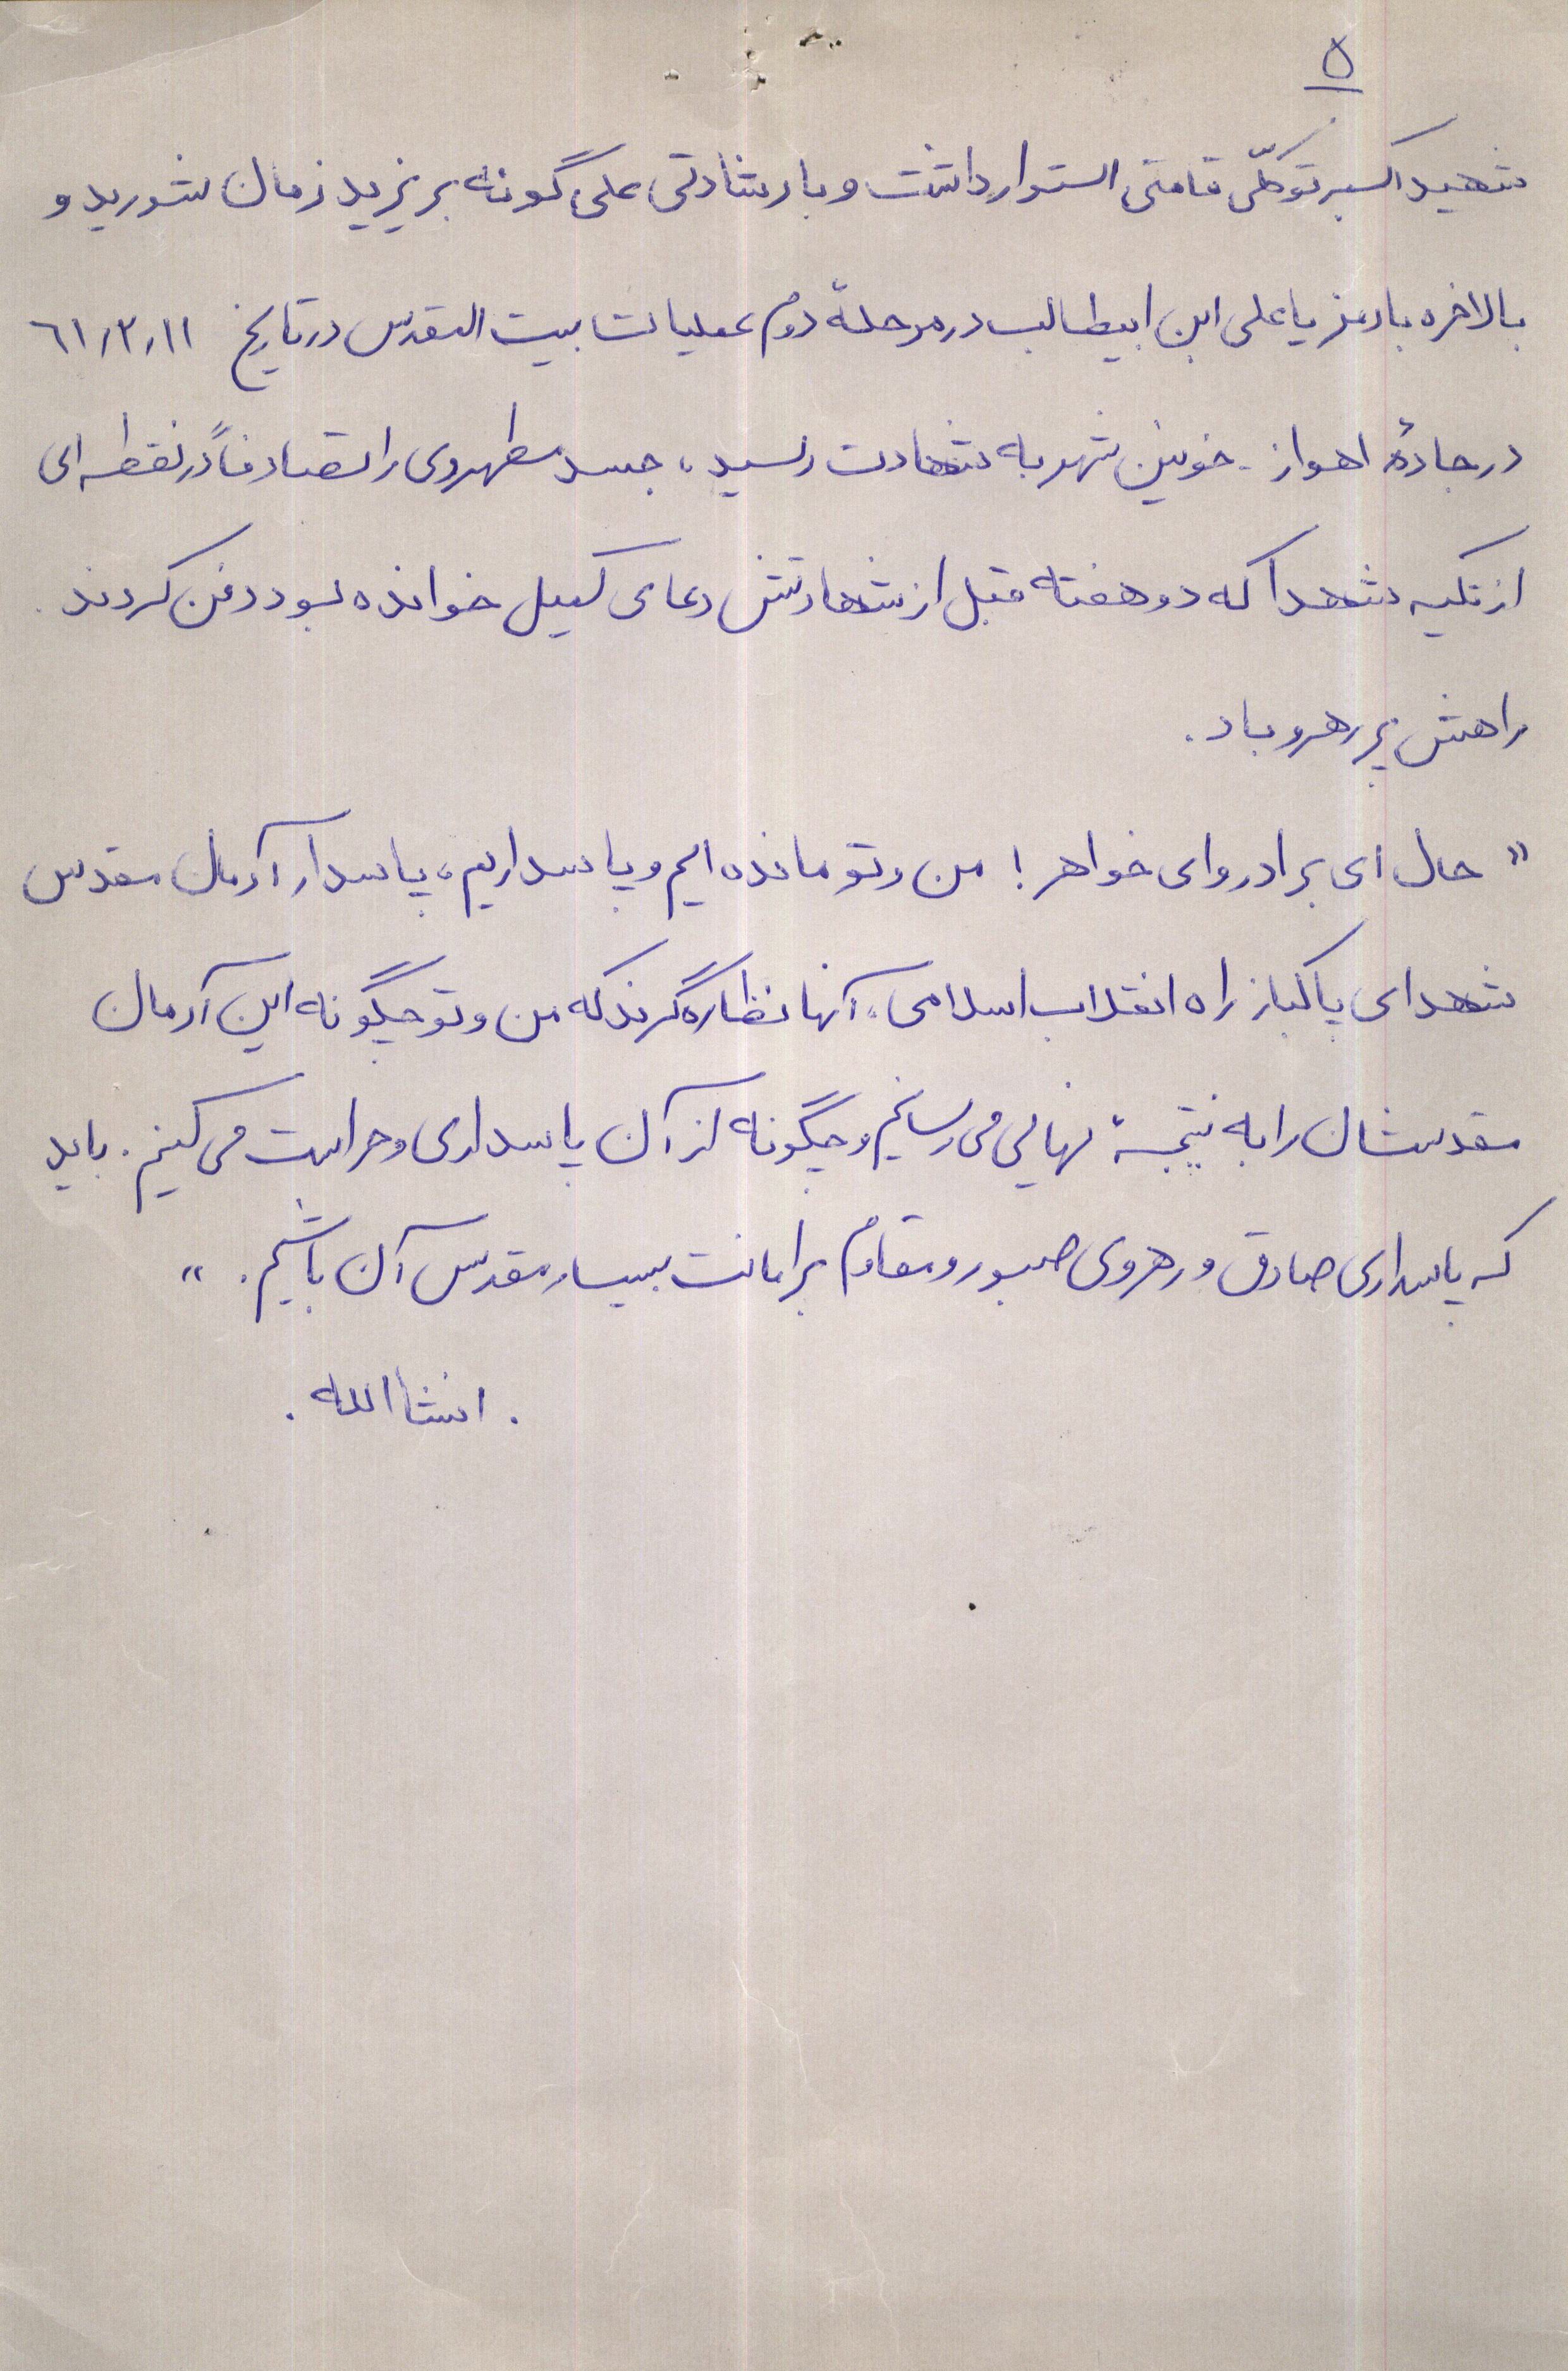 ۵
شهید اکبر توکلّی قامتی استوار داشت و با رشادتی علی گونه بر یزید زمان شورید و
بالاخره با رمز یا علی ابن ابیطالب در مرحلهٔ دوم عملیات بیت المقدس در تاریخ ۶۱٫۲٫۱۱
در جادهٔ اهواز - خونین شهر به شهادت رسید، جسد مطهروی را تصادفاً در نقطه ای
از تکیه شهدا که دو هفته قبل از شهادتش دعای کمیل خوانده بود دفن کردند.
راهش پر رهرو باد.
« حال ای برادر و ای خواهر! من و تو مانده ایم و پاسداریم، پاسدار آرمان مقدس
شهدای پاکباز راه انقلاب اسلامی، آنها نظاره گرند که من و تو چگونه این آرمان
مقدسشان را به نتیجهٔ نهایی می رسانیم و چگونه از آن پاسداری و حراست می کنیم. باید
که پاسداری صادق و رهروی صبور و مقاوم بر امانت بسیار مقدس آن باشیم. »
. انشاالله.